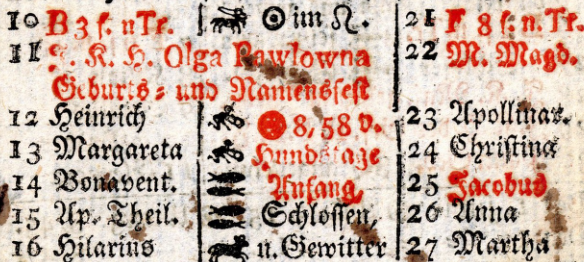 10 B 3 s. n Tr. ☉ im ♌. 21 F 8 s. n. Tr.
11 J. K. H. Olga Pawlowna 22 M. Magd.
Geburts- und Namensfest
12 Heinrich ☉ 8, 58 v. 23 Apollinar.
13 Margareta Hundstage 24 Christina
14 Bonavent. Anfang, 25 Jacobus
15 Ap. Theil. Schlossen, 26 Anna
16 Hilarius u. Gewitter 27 Martha